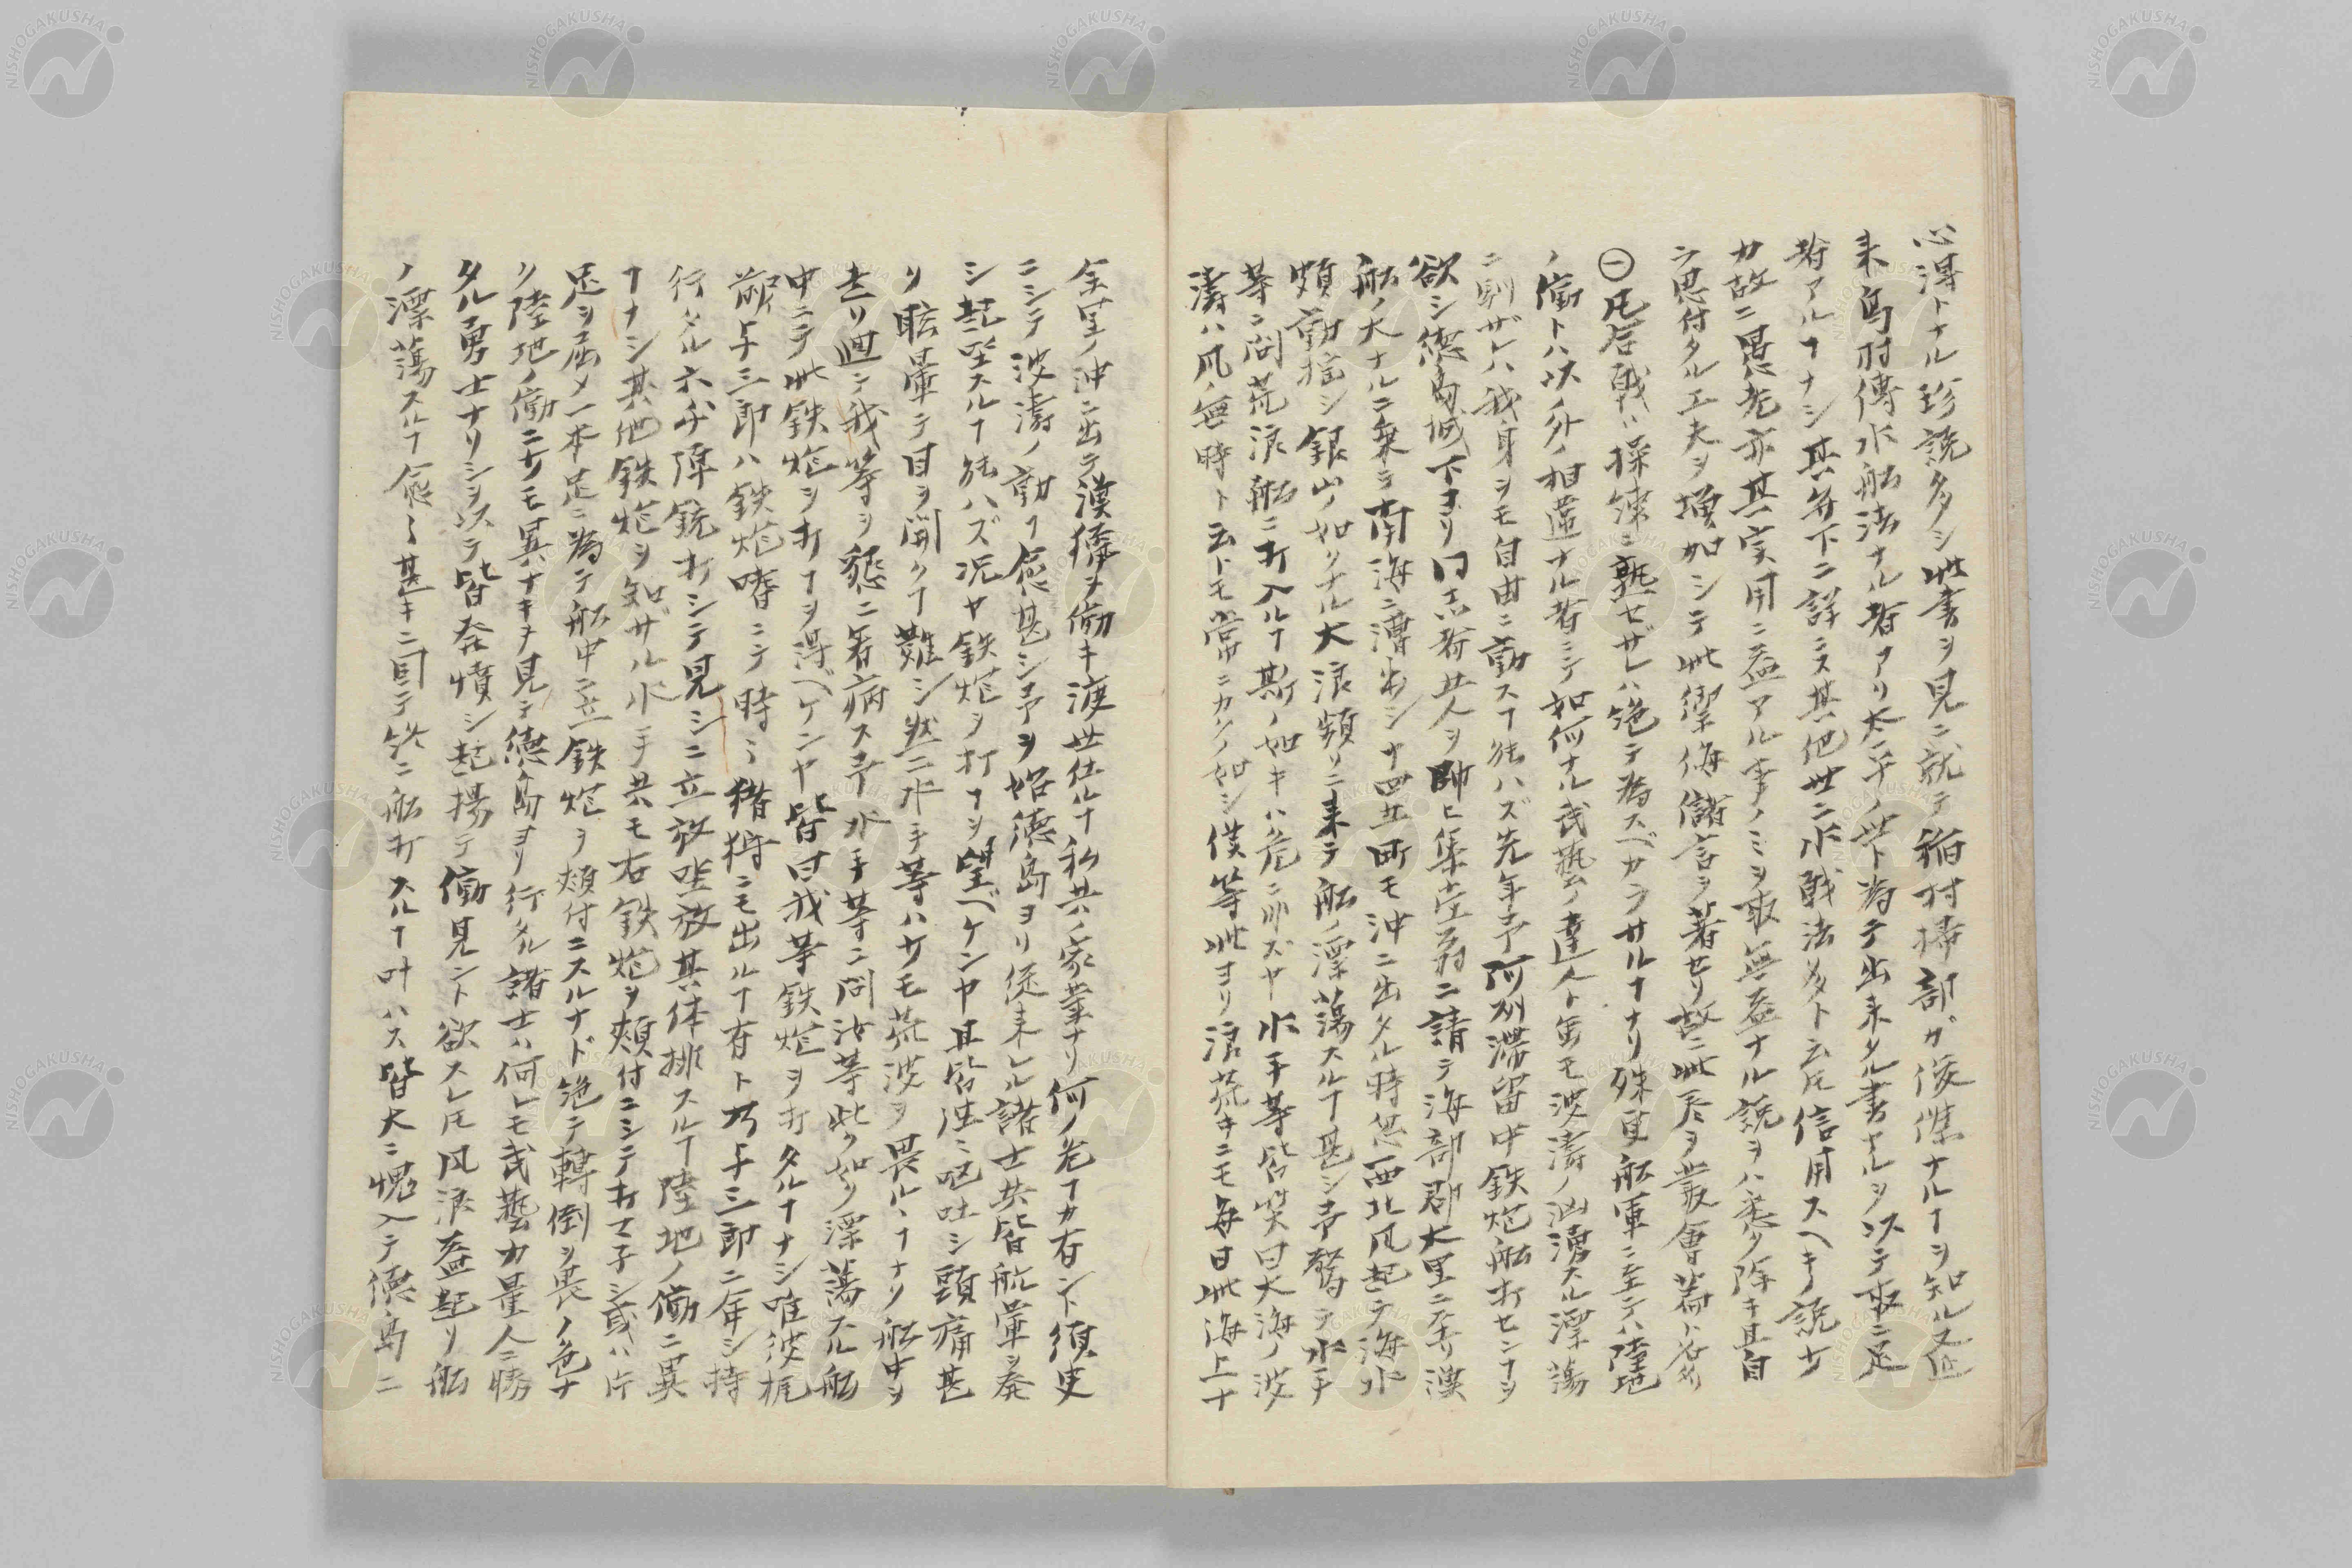 心得トナル珍説多シ此書ヲ見ニ就テ稲村掃部ガ俊傑ナルヿヲ知ル又近
来島村傳水舩法ナル者アリ太平ノ世ト為テ出来タル書ナルヲ以テ取ニ足
者アルヿナシ其弁下ニ詳ニス其他世ニ水戦法多ト云𪜈信用スヘキノ説ナ
カ故ニ愚老亦其実用ニ益アル事ノミヲ取無益ナル説ヲハ悉ク除キ且自
ラ思付タル工夫ヲ増加シテ此禦侮儲言ヲ著セリ故ニ此巻ヲ叢會篇ト名ク
㊀凡舟戦ハ操練ニ熟セザレハ絶テ為スベカラサルナナリ殊更舩軍ニ至テハ陸地
ノ働トハ以ノ外ノ相違ナル者ニテ如何ナル武藝ノ達人ト雖モ波濤ノ洶湧スル漂蕩
ニ馴ザレハ我身ヲモ自由ニ動スヿ能ハズ先年予阿州滞留中鉄炮舩打センヿヲ
欲シ徳島城下ヨリ同志者廿人ヲ帥ヒ集堂翁ニ請テ海部郡大里ニ至リ漢
舩ノ大ナルニ乗ラ南海ニ漕出シ十四五町モ沖ニ出タル時忽西北風起テ海水
頻動揺シ銀山ノ如クナル大浪頻リニ来テ舩ノ漂蕩スルヿ甚シ予驚テ水手
等ニ問荒浪舩ニ打入ルヿ斯ノ如キハ危ニ非ズヤ水手等皆笑曰大海ノ波
濤ハ風ノ無時ト云トモ常ニカクノ如シ僕等此ヨリ浪荒キニモ毎日此海上十
余里ノ沖ニ出テ漢猟ヲ働キ渡世仕ルヿ私共ノ家業ナリ何ノ危ヿカ有ント須臾
ニシテ波濤ノ動ヿ愈甚シ予ヲ始徳島ヨリ従来レル諸士共皆舩暈ヲ発
シ起坐スルヿ能ハズ况ヤ鉄炮ヲ打ヿヲ望ベケンヤ且皆泄ミ嘔吐シ頭痛甚
リ眩暈テ目ヲ開クヿ難シ然ニ水手等ハサモ荒波ヲ畏ルヽヿナリ舩中ヲ
走リ廻テ我等ヲ懇ニ看病ス予水手等ニ問汝等此ク如ク漂蕩スル舩
中ニテ此鉄炮ヲ打ヿヲ得ベケンヤ皆曰我等鉄炮ヲ打タルヿナシ唯彼梶
部与三郎ハ鉄炮嗜ニテ時々猪狩ニモ出ルヿ有ト乃与三郎ニ命シ持
行タル六匁陣銃打シテ見シニ立放坐放其体排スルヿ陸地ノ働ニ異
ナナシ其他鉄炮ヲ知ザル水手共モ右鉄炮ヲ頬付ニシテ打マ子シ或ハ片
足ヲ屈メ一本足ニ為テ舩中ニ立鉄炮ヲ頬付ニスルナド絶テ轉倒ヲ畏ノ色ナ
リ陸地ノ働ニサモ異ナキヲ見テ徳島ヨリ行タル諸士ハ何レモ武藝力量人ニ勝
タル勇士ナリシヲ以テ皆発憤シ起揚テ働見ント欲スレ𪜈風浪益起リ舩
ノ漂蕩スルヿ愈々甚キニ因テ終ニ舩打スルヿ叶ハス皆大ニ愧入テ徳島ニ